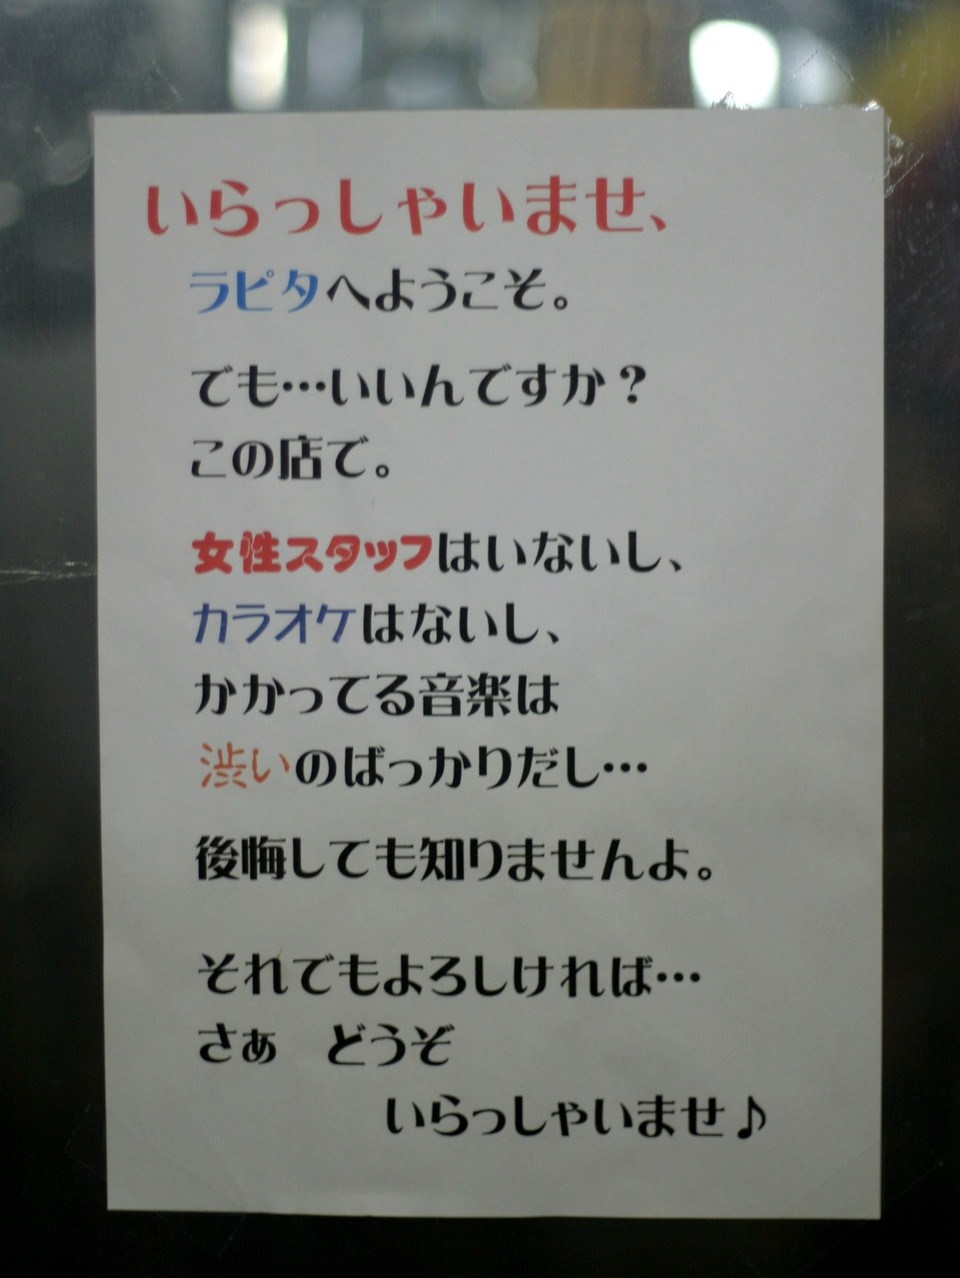 いらっしゃいませ、
ラピタへようこそ。
でも…いいんですか？
この店で。
女性スタッフはいないし、
カラオケはないし、
かかってる音楽は
渋いのばっかりだし…
後悔しても知りませんよ。
それでもよろしければ…
さぁ　どうぞ
いらっしゃいませ♪